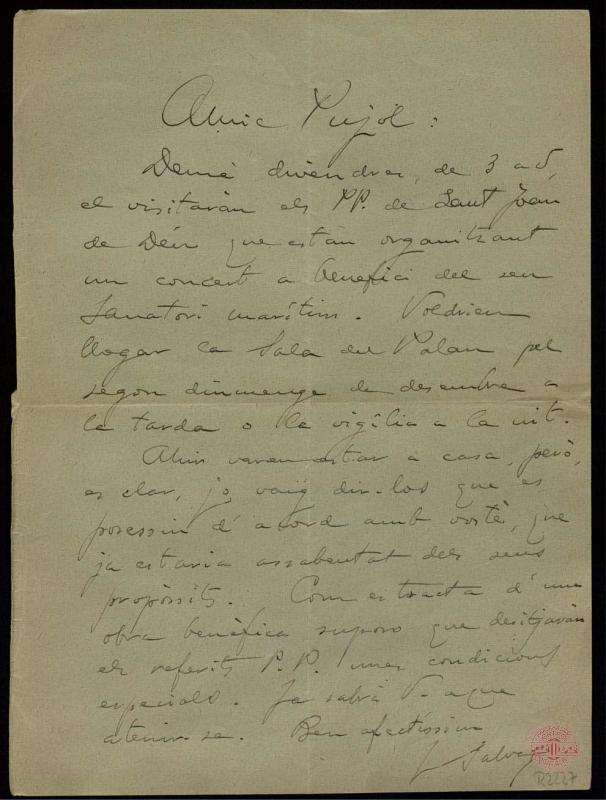 Amic Pujol:
Demà divendres, de 3 a 5,
el visitaràn els PP. de Sant Joan
de Déu que estàn organitzant
un concert a benefici del seu
Sanatori marítim. Voldrien
llogar la Sala del Palau pel
segon diumenge de desembre a
la tarda o la vigília a la nit.
Ahir varen estar a casa, però,
es clar, jo vaig dir-los que es
posessin d'acord amb vostè, que
ja estaria assabentat dels seus
propòsits. Com es tracta d'una
obra benèfica suposo que desitjaràn
els referits P.P. unes condicions
especials. Ja sabrà V. a que
atenir-se. Ben afectíssim
Salvat
R2227